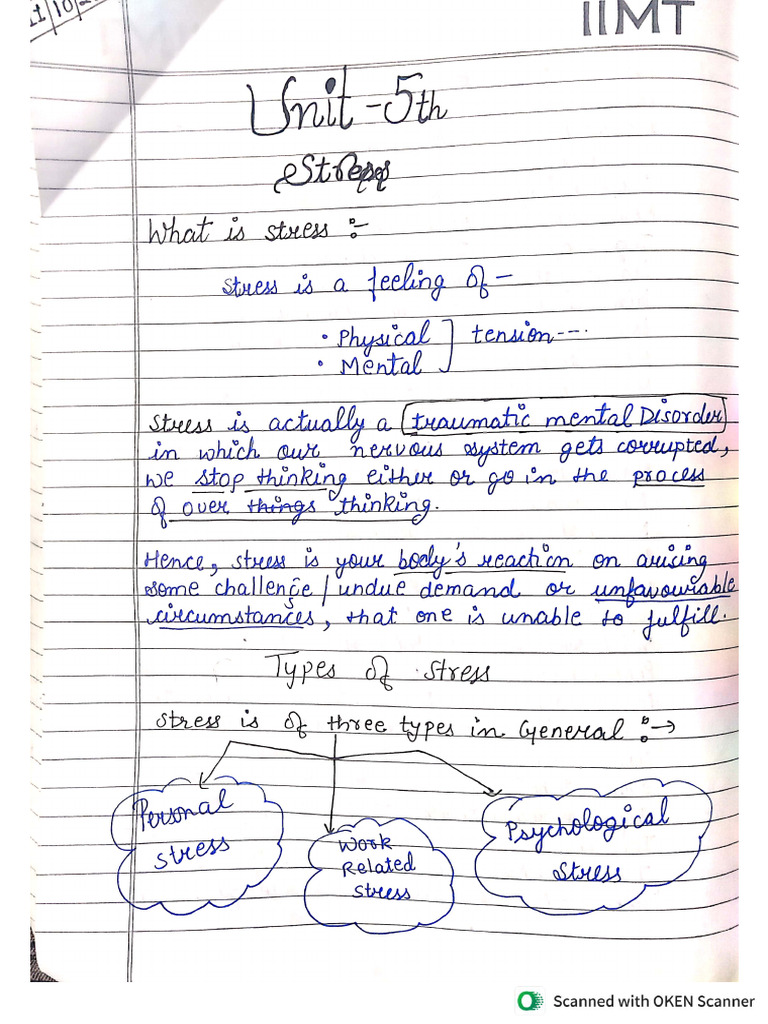 11/10/2
IIMT
Unit-5th
Stress
What is stress :-
Stress is a feeling of -
• Physical ] tension---
• Mental
Stress is actually a (traumatic mental Disorder)
in which our nervous system gets corrupted,
we stop thinking either or go in the process
of over things thinking.
Hence, stress is your body's reaction on arising
some challenge / undue demand or unfavouriable
circumstances, that one is unable to fulfill.
Types of stress
stress is of three types in General :→
Personal
stress
Work
Related
Stress
Psychological
Stress
Scanned with OKEN Scanner